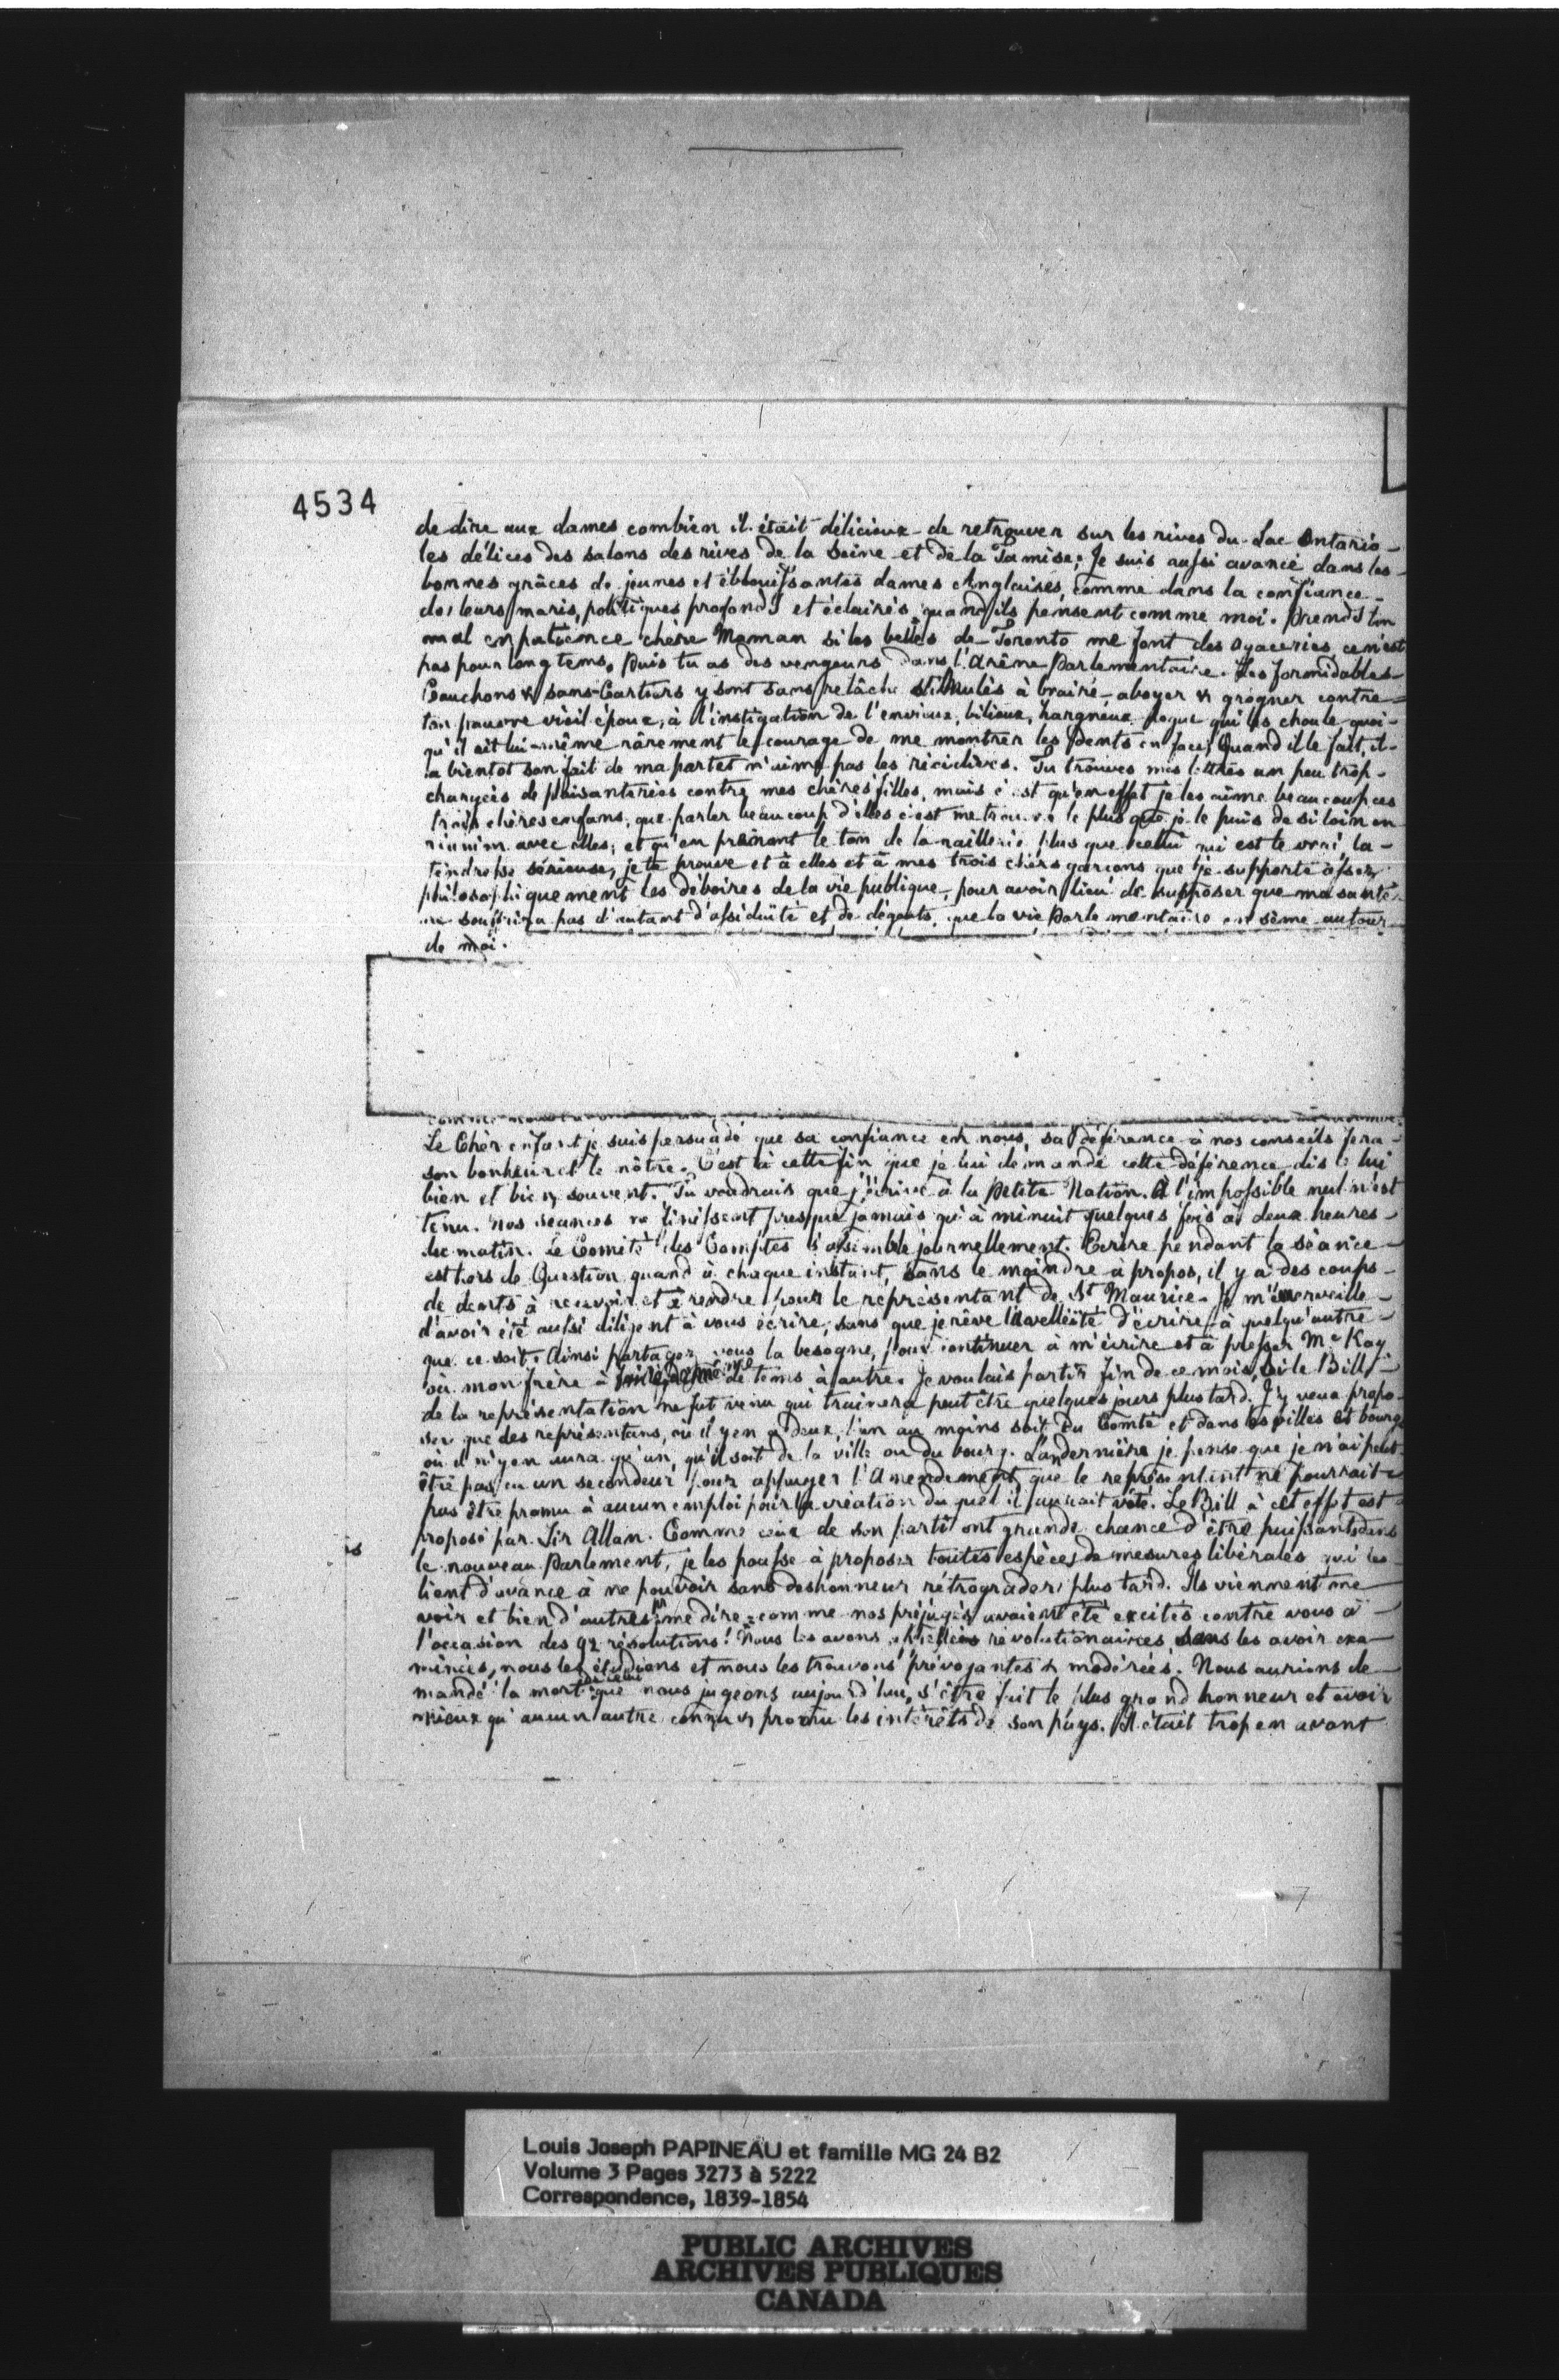 4534
de dire aux dames combien il était délicieux de retrouver sur les rives du Lac Ontario
les délices des salons des rives de la Seine et de la Tamise; Je suis aussi avancé dans les
bonnes grâces de jeunes et éblouissantes dames Anglaises, comme dans la confiance
de leurs maris, politiques profonds et éclairés quand ils pensent comme moi. Prends ton
mal en patience chère Maman si les belles de Toronto me font des agaceries, ce n'est
pas pour longtems. Puis tu as des vengeurs dans l'Arêne Parlementaire. Les formidables
Cauchons & sans-Cartiers y sont sans relâche stimulés à braire, aboyer & grogner contre
ton pauvre vieil époux, à l'instigation de l'envieux, bilieux, hargneux dogue qui les choule quoi-
qu'il ait lui-même rârement le courage de me montrer les dents en face; Quand il le fait, il
a bientot son fait de ma part et n'aime pas les récidives. Tu trouves mes lettres un peu trop
chargées de plaisanteries contre mes chères filles, mais c'est qu'en effet je les aime beaucoup ces
trois chères enfans, que parler beaucoup d'elles c'est me trouver le plus que je le puis de si loin en
réunion avec elles; et qu'en prenant le ton de la raillerie plus que celui qui est le vrai, la
tendresse sérieuse, je te prouve et à elles et à mes trois chers garçons que je supporte assez
philosophiquement les déboires de la vie publique, pour avoir lieu de supposer que ma santé
ne souffrira pas d'autant d'assiduité et de dégouts que la vie Parlementaire en sème autour
de moi.
Le Cher enfant je suis persuadé que sa confiance en nous, sa déférence à nos conseils fera
son bonheur et le nôtre. C'est à cette fin que je lui demande cette déférence, dis le lui
bien et bien souvent. Tu voudrais que j'écrive à la Petite Nation. A l'impossible nul n'est
tenu. Nos séances ne finissent presque jamais qu'à minuit quelques fois à deux heures
du matin. Le Comité des Comptes s'assemble journellement. Ecrire pendant la séance
est hors de Question quand à chaque instant, sans le moindre à propos, il y a des coups
de dents à recevoir et à rendre pour le représentant de St Maurice. Je m'émerveille
d'avoir été aussi diligent à vous écrire, sans que je rêve la velléité d'écrire à quelqu'autre
que ce soit. Ainsi partagez vous la besogne, pour continuer à m'écrire et à presser Mc Kay
ou mon frère à de tems à autre. Je voulais partir fin de ce mois, si le Bill
de la représentation ne fut venu qui trainera peut être quelques jours plus tard. J'y veux propo-
ser que des représentans, où il y en a deux, l'un au moins soit du Comté et dans les villes et bourgs
où il n'y en aura qu'un, qu'il soit de la ville ou du bourg. L'an dernière je pense que je n'ai peut
être pas eu un secondeur pour appuyer l'Amendement que le représentant ne pourrait
pas être promu à aucun emploi pour la création du quel il aurait voté. Le Bill à cet effet est
proposé par Sir Allan. Comme ceux de son parti ont grande chance d'être puissants dans
le nouveau Parlement, je les pousse à proposer toutes espèces de mesures libérales qui les
lient d'avance à ne pouvoir sans deshonneur rétrograder plus tard. Ils viennent me
voir et bien d'autres pr me dire: comme nos préjugés avaient été excités contre vous à
l'occasion des 92 résolutions! Nous les avons révolutionaires sans les avoir exa-
minées, nous les étudions et nous les trouvons prévoyantes & modérées. Nous aurions de-
mandé la mort de celui que nous jugeons aujourd'hui, s'être fait le plus grand honneur et avoir
mieux qu'aucun autre connu & promu les intérêts de son pays. Il était trop en avant
Louis Joseph PAPINEAU et famille MG 24 B2
Volume 3 Pages 3273 à 5222
Correspondence, 1839-1854
PUBLIC ARCHIVES
ARCHIVES PUBLIQUES
CANADA